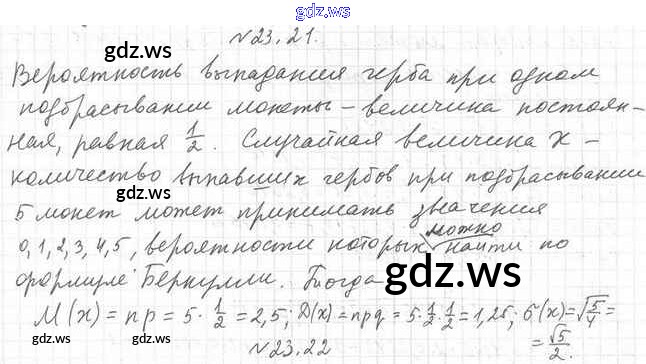 gdz.ws
№ 23.21.
gdz.ws
Вероятность выпадания герба при одном
подбрасывании монеты – величина постоян-
ная, равная 1/2. Случайная величина X –
количество выпавших гербов при подбрасывании
gdz.ws
5 монет может принимать значения
0, 1, 2, 3, 4, 5, вероятности которых можно найти по
формуле Бернулли. Тогда
gdz.ws
M(x) = np = 5 · 1/2 = 2,5; D(x) = npq = 5·1/2·1/2 = 1,25; σ(x) = √5/4 =
= √5/2.
№ 23.22
gdz.ws